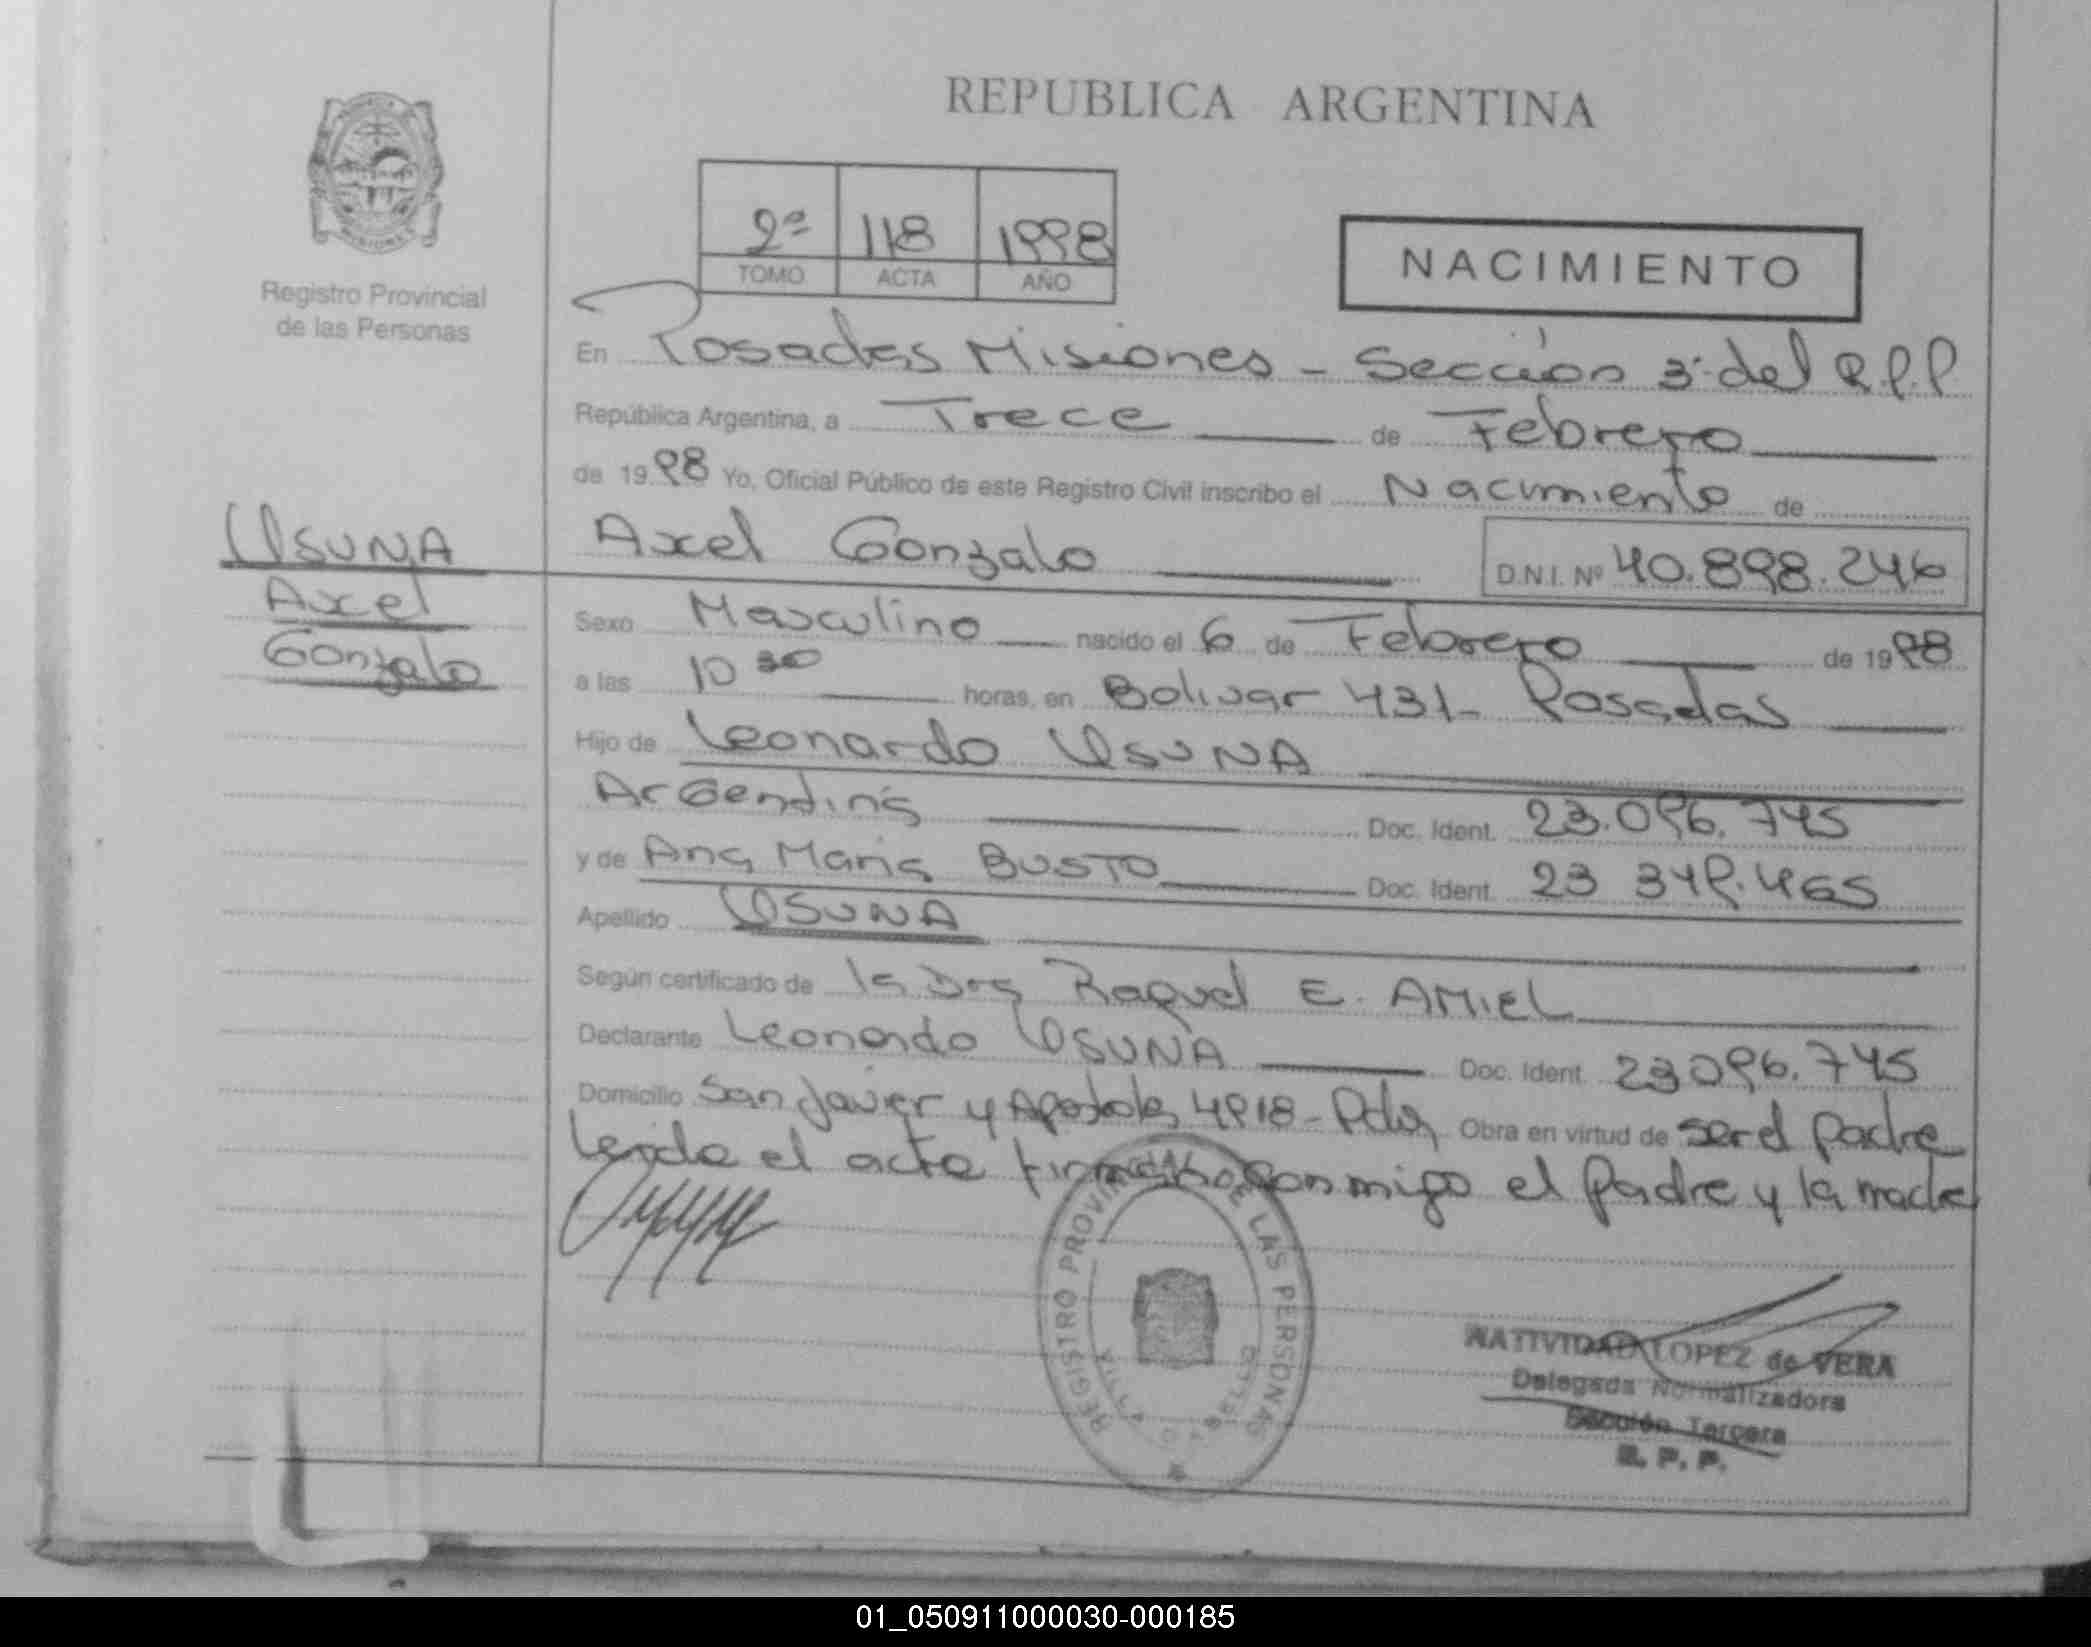 REPUBLICA ARGENTINA
MISIONES
Registro Provincial
de las Personas
2ª 118 1998
TOMO ACTA AÑO
NACIMIENTO
En Posadas Misiones - Sección 3ª del R.P.P
República Argentina, a Trece de Febrero
de 1998 Yo, Oficial Público de este Registro Civil inscribo el Nacimiento de
USUNA
Axel
Gonzalo
Axel Gonzalo D.N.I. Nº 40.898.246
Sexo Masculino nacido el 6 de Febrero de 1998
a las 10 30 horas, en Bolivar 431- Posadas
Hijo de Leonardo USUNA
Argentina Doc. Ident. 23.096.745
y de Ana Maria BUSTO Doc. Ident. 23 349.465
Apellido USUNA
Según certificado de la Dra Raquel E. AMIEL
Declarante Leonardo USUNA Doc. Ident. 23096.745
Domicilio San Javier y Apostoles 4918- Pdas Obra en virtud de ser el padre
Leida el acta firmando conmigo el padre y la madre
REGISTRO PROVINCIAL DE LAS PERSONAS
VILLA
NATIVIDAD LOPEZ de VERA
Delegada Normalizadora
Sección Tercera
R. P. P.
01_050911000030-000185